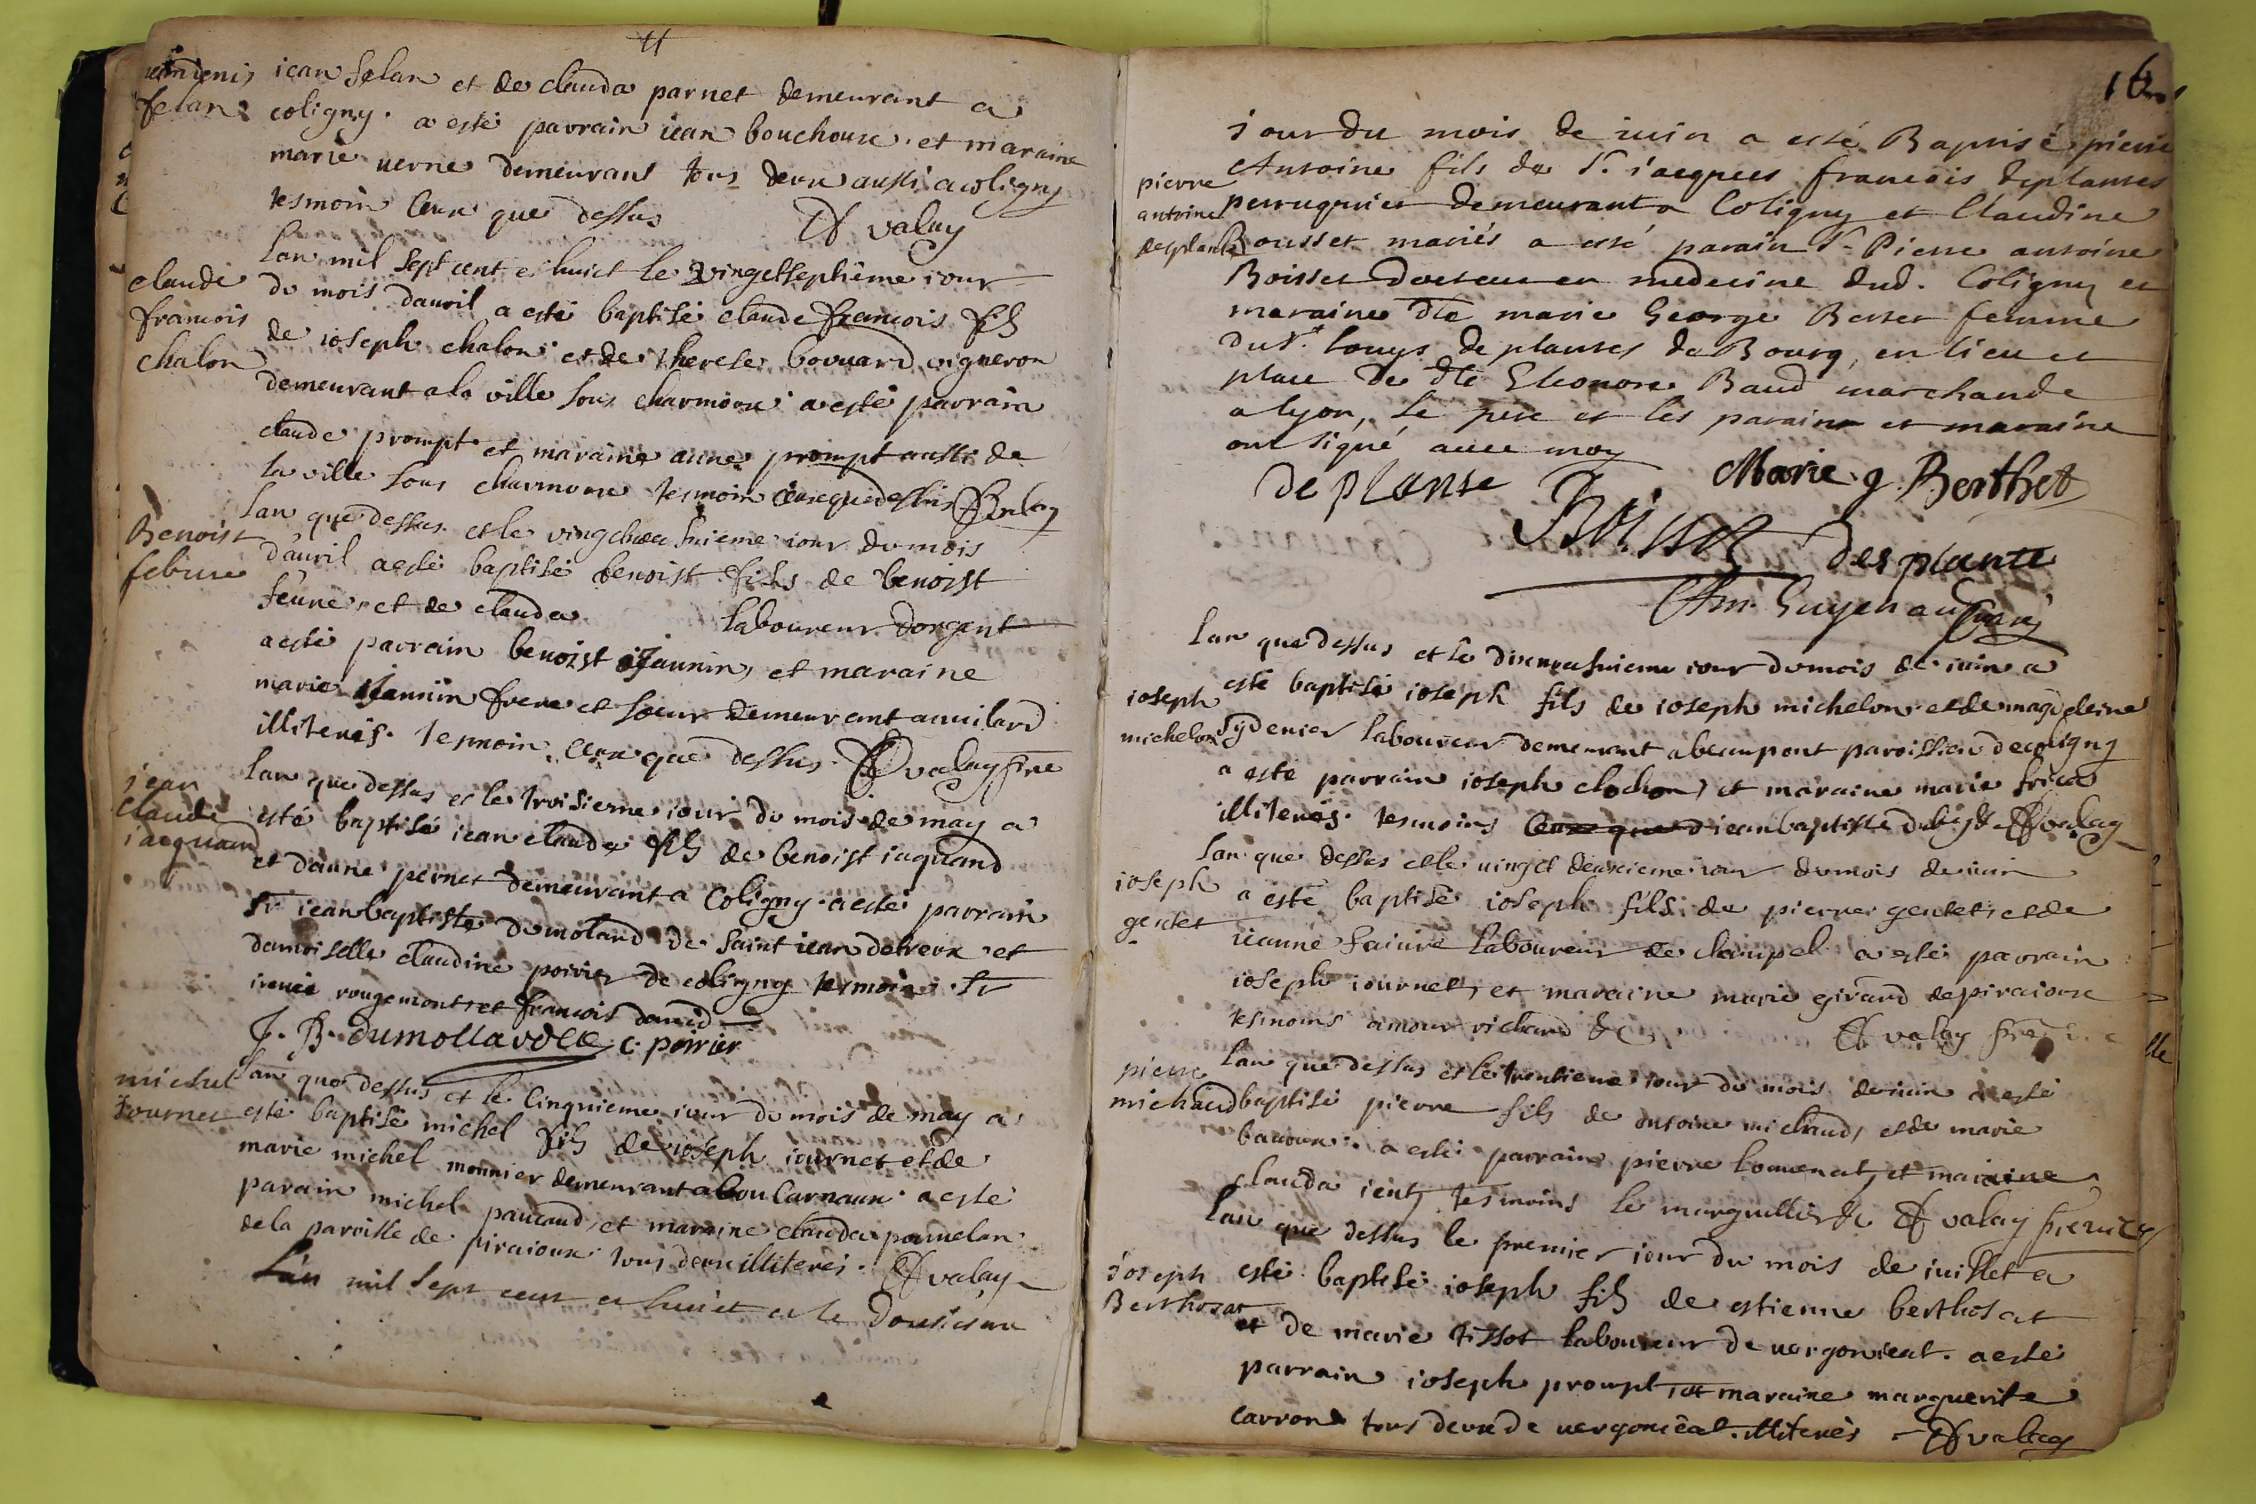 jean denis
felan
jean felan et de clauda parnet demeurant a
coligny. a esté parrain jean bouchoux. et maraine
marie verne demeurant tous deux aussi a coligny
tesmoin ceux que dessus valay
claude
francois
chalon
Lan mil sept cent et huict le vingtseptième iour
du mois dauril a esté baptisé claude francois fils
de ioseph chalon et de therese bouuard vigneron
demeurant a la ville sous charmoux a esté parrain
claude prompt et maraine anne prompt aussi de
la ville sous charmoux tesmoin ceux que dessus Valay
Benoist
febure
Lan que dessus et le vingt huictieme iour du mois
dauril a esté baptisé benoist fils de benoist
feure et de clauda laboureur dorgent
a esté parrain benoist Jannin, et maraine
marie Jannin frere et soeur demeurant a uilard
illiterés. tesmoin ceux que dessus. valay ptre
jean
claude
iacquand
Lan que dessus et le troisieme iour du mois de may a
esté baptisé iean claude fils de benoist iaquand
et danne pernet demeurant a Coligny a esté parrain
Sr iean baptiste dumolard de saint iean detreux et
damoiselle claudine poirier de coligny tesmoins Sr
irenée rougemont et francois david
J. B. dumollard c. poirier
michel
Journet
Lan que dessus et le cinquieme iour du mois de may a
esté baptisé michel fils de ioseph iournet et de
marie michel monnier demeurant a boucarnaux a esté
parain michel paucaud, et maraine clauda pamelan
de la paroisse de piraioux tous deux illiterés. valay
Lan mil sept cent et huict et le dousieme
16
jour du mois de iuin a esté Baptisé pierre
pierre
antoine
desplante
Antoine fils de Sr. jacques francois deplantes
perruquier demeurant a Coligny et Claudine
Rousset mariés a esté parain Sr Pierre antoine
Boisset docteur en medecine dud. Coligny et
maraine dlle marie George Bertet femme
du Sr. Louys deplantes de Bourg, en lieu et
place de dlle Eleonore Baud marchande
a lyon, Le pere et les parain et maraine
ont signé auec moy
de planse Marie. g. Berthet
Boisset desplante
Guyenau
joseph
michelon
Lan que dessus et le dixneufuieme iour du mois de iuin a
esté baptisé ioseph fils de ioseph michelon et de magdeleine
Tydenier laboureur demeurant a beaupont paroissien de coligny
a esté parrain ioseph clochon, et maraine marie
illiterés. tesmoins ceux que d iean baptiste valay
ioseph
gentet
Lan que dessus et le vingt deuxieme iour du mois de iuin
a esté baptisé ioseph fils de pierre gentet, et de
ieanne faiure laboureur de chaipel a esté parrain
ioseph iournet, et maraine marie girard de piraioux
tesmoins amour richard &c valay
pierre
michaud
Lan que dessus et le trentieme iour du mois de iuin a esté
baptisé pierre fils de antoine michaud, et de marie
bacoux. a esté parrain pierre louuenat, et maraine
clauda ient, tesmoins le marguillier &c valay
joseph
Berthosat
Lan que dessus le premier iour du mois de iuillet a
esté baptisé ioseph fils de estienne berthosat
et de marie tissot laboureur de vergongeat. a esté
parrain ioseph prompt, et maraine marguerite
carron tous deux de vergongeat. illiterés valay